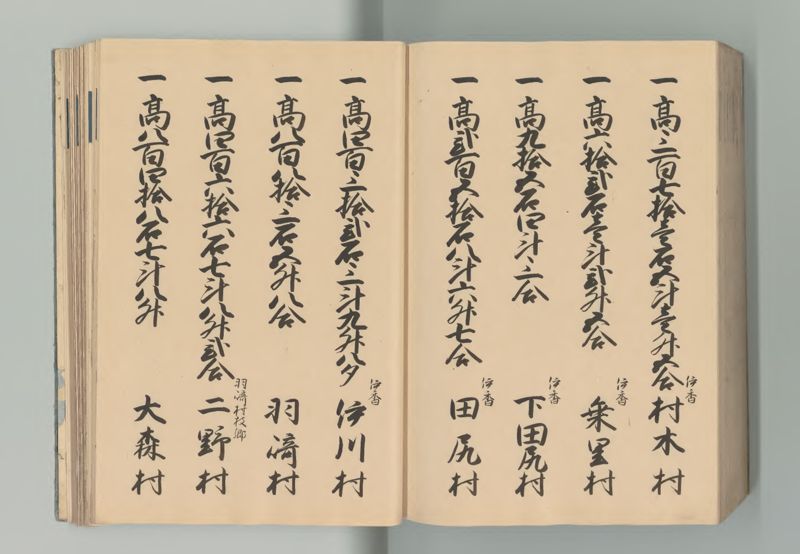 一 高三百七拾壱石五斗壱升五合 伊香 村木村
一 高六拾弐石壱斗弐升五合 伊香 乗里村
一 高九拾五石四斗三合 伊香 下田尻村
一 高弐百五拾石八斗六升七合 伊香 田尻村
一 高四百三拾弐石三斗九升八夕 伊香 伊川村
一 高八百八拾三石五升八合 羽崎村
一 高四百六拾六石七斗八升弐合 羽崎村枝郷 二野村
一 高八百四拾八石七斗八升 大森村